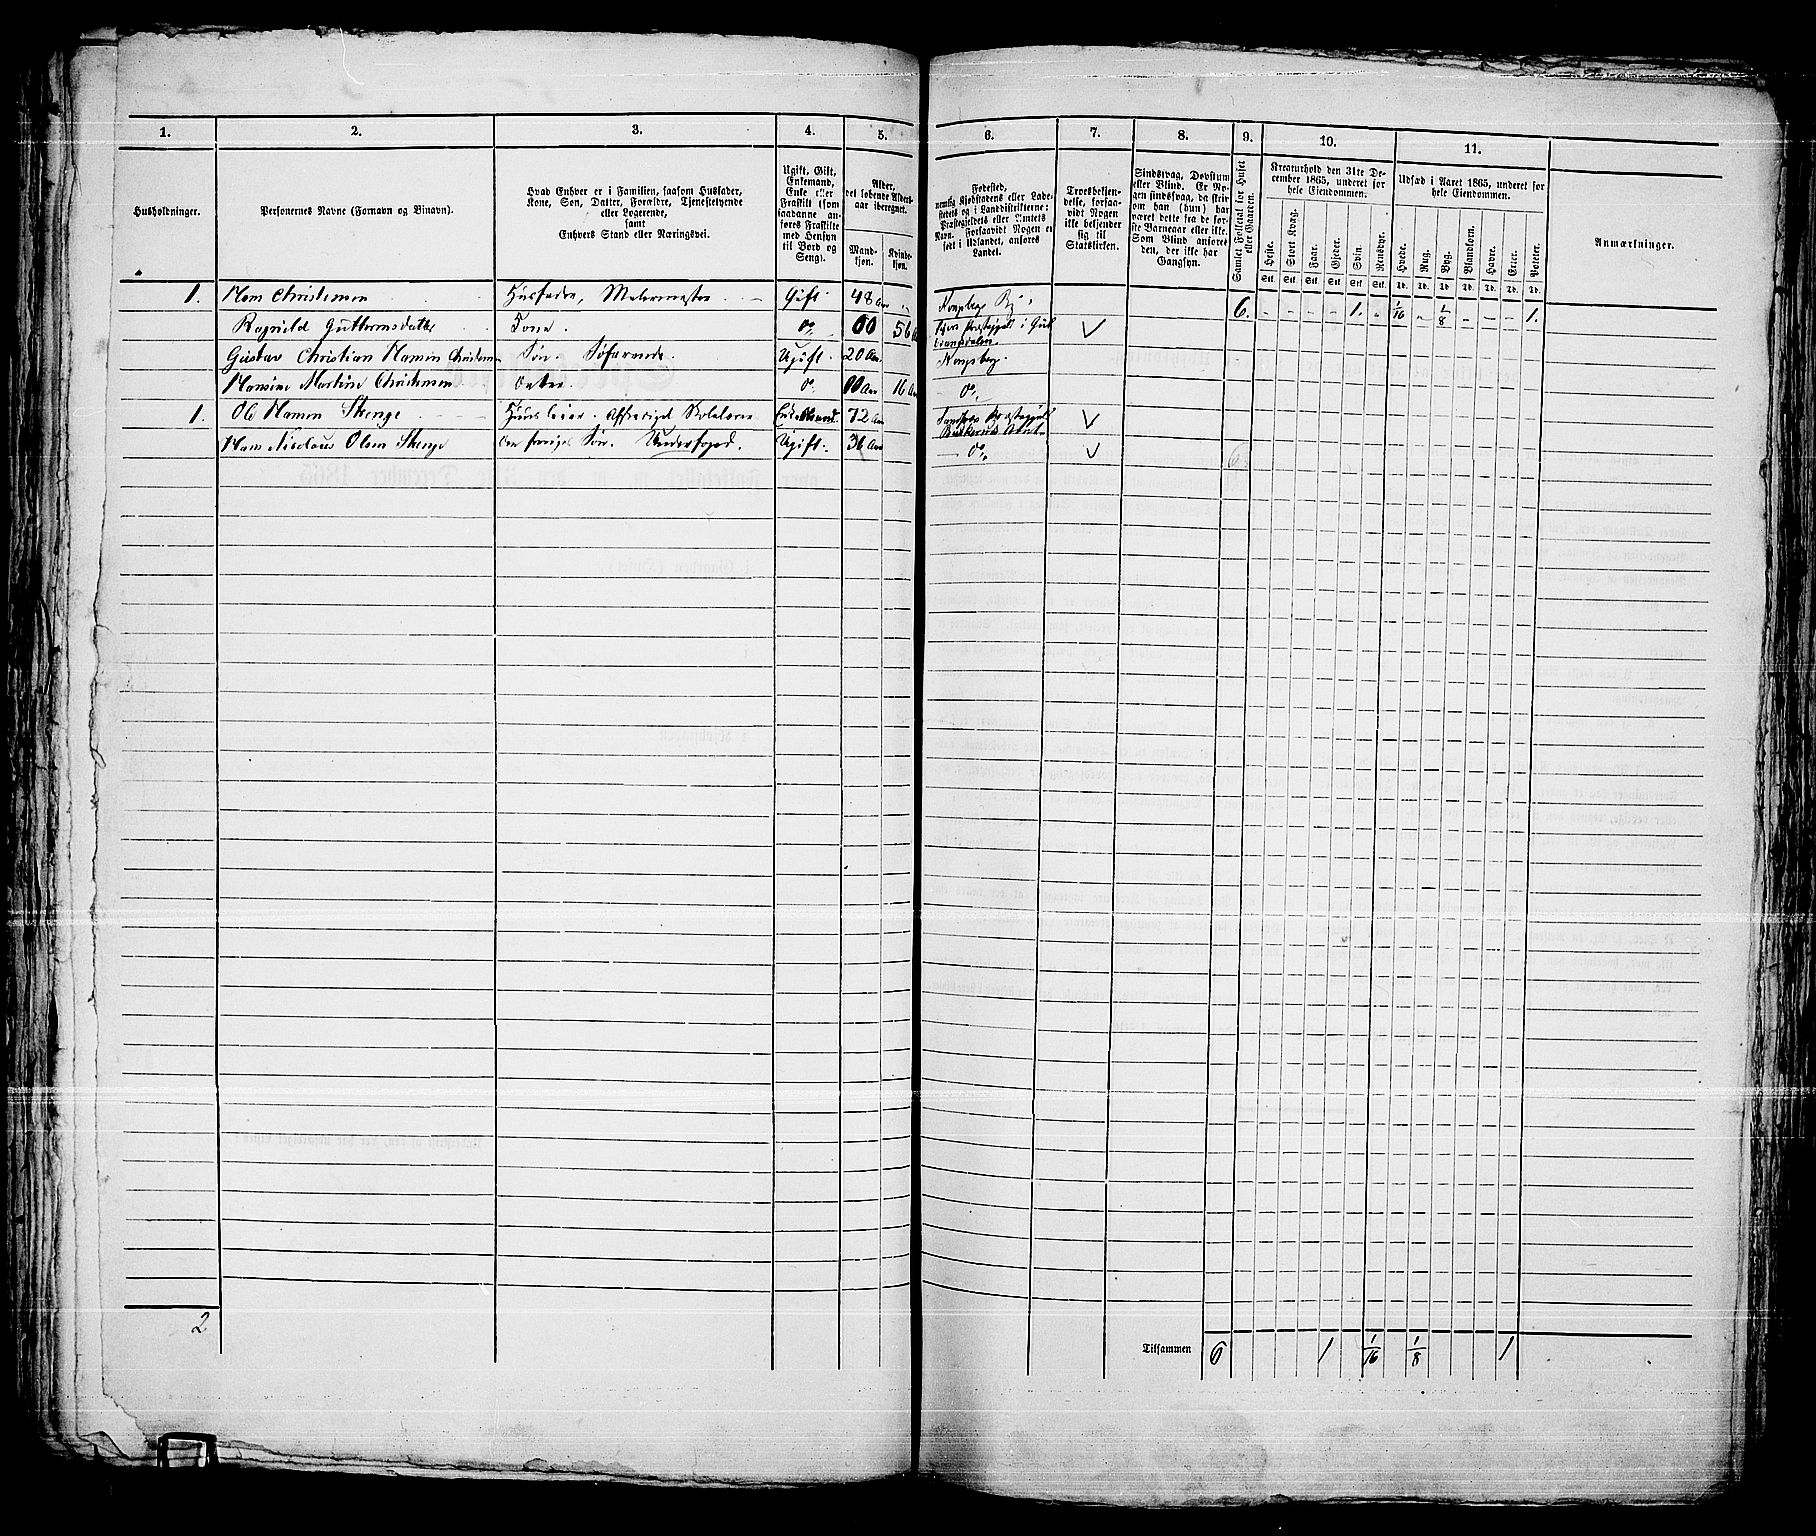 1. 2. 3. 4. 5. 6. 7. 8. 9. 10. 11.
Husholdninger.
Personernes Navne (Fornavn og Binavn).
Hvad Enhver er i Familien, saasom Husfader,
Kone, Søn, Datter, Forældre, Tjenestetyende
eller Logerende,
samt
Enhvers Stand eller Næringsvei.
Ugift, Gift,
Enkemand,
Enke eller
Fraskilt (som
saadanne an-
føres Fraskilte
med Hensyn
til Bord og
Seng).
Alder,
det løbende Alders-
aar iberegnet.
Mand-
kjøn.
Kvinde-
kjøn.
Fødested,
nemlig Kjøbstadens eller Lade-
stedets og i Landdistrikterne:
Præstegjeldets eller Amtets
Navn. Forsaavidt Nogen er
født i Udlandet, anføres
Landet.
Troesbekjen-
delse, forsaa-
vidt Nogen
ikke bekjender
sig til
Statskirken.
Sindssvag, Døvstum
eller Blind. Er No-
gen sindssvag, da skri-
ves om han (hun) har
været dette fra de før-
ste Barneaar eller ikke.
Som Blind anføres
den, der ikke har
Gangsyn.
Samlet Folketal for Huset
eller Gaarden.
Kreaturhold den 31te De-
cember 1865, underet for
hele Eiendommen.
Heste. Stort Kvæg. Faar. Gjeder. Svin. Rensdyr.
Stk. Stk. Stk. Stk. Stk. Stk.
Udsæd i Aaret 1865, underet for
hele Eiendommen.
Hvede. Rug. Byg. Blandkorn. Havre. Erter. Poteter.
Td. Td. Td. Td. Td. Td. Td.
Anmærkninger.
1. Hans Christensen Husfader, Malermester Gift 48 Aar Kongsberg By 6. 1. 1/16 1/8 1.
Ragnild Guttormsdatter Kone. Do 56
Gustav Christian Hansen Christensen Søn. Søfarende. Ugift. 20 Aar Kongsberg.
Hansine Martine Christensen Datter. Do 16 Do
1. Ole Hansen Skenge Huusleier. Afskediget Skolelærer Enkemand 72 Aar
Hans Nicolaus Olsen Skenge den forriges Søn. Underfoged. Ugift. 36 Aar Do 6
2
Tilsammen 6 1 1/16 1/8 1